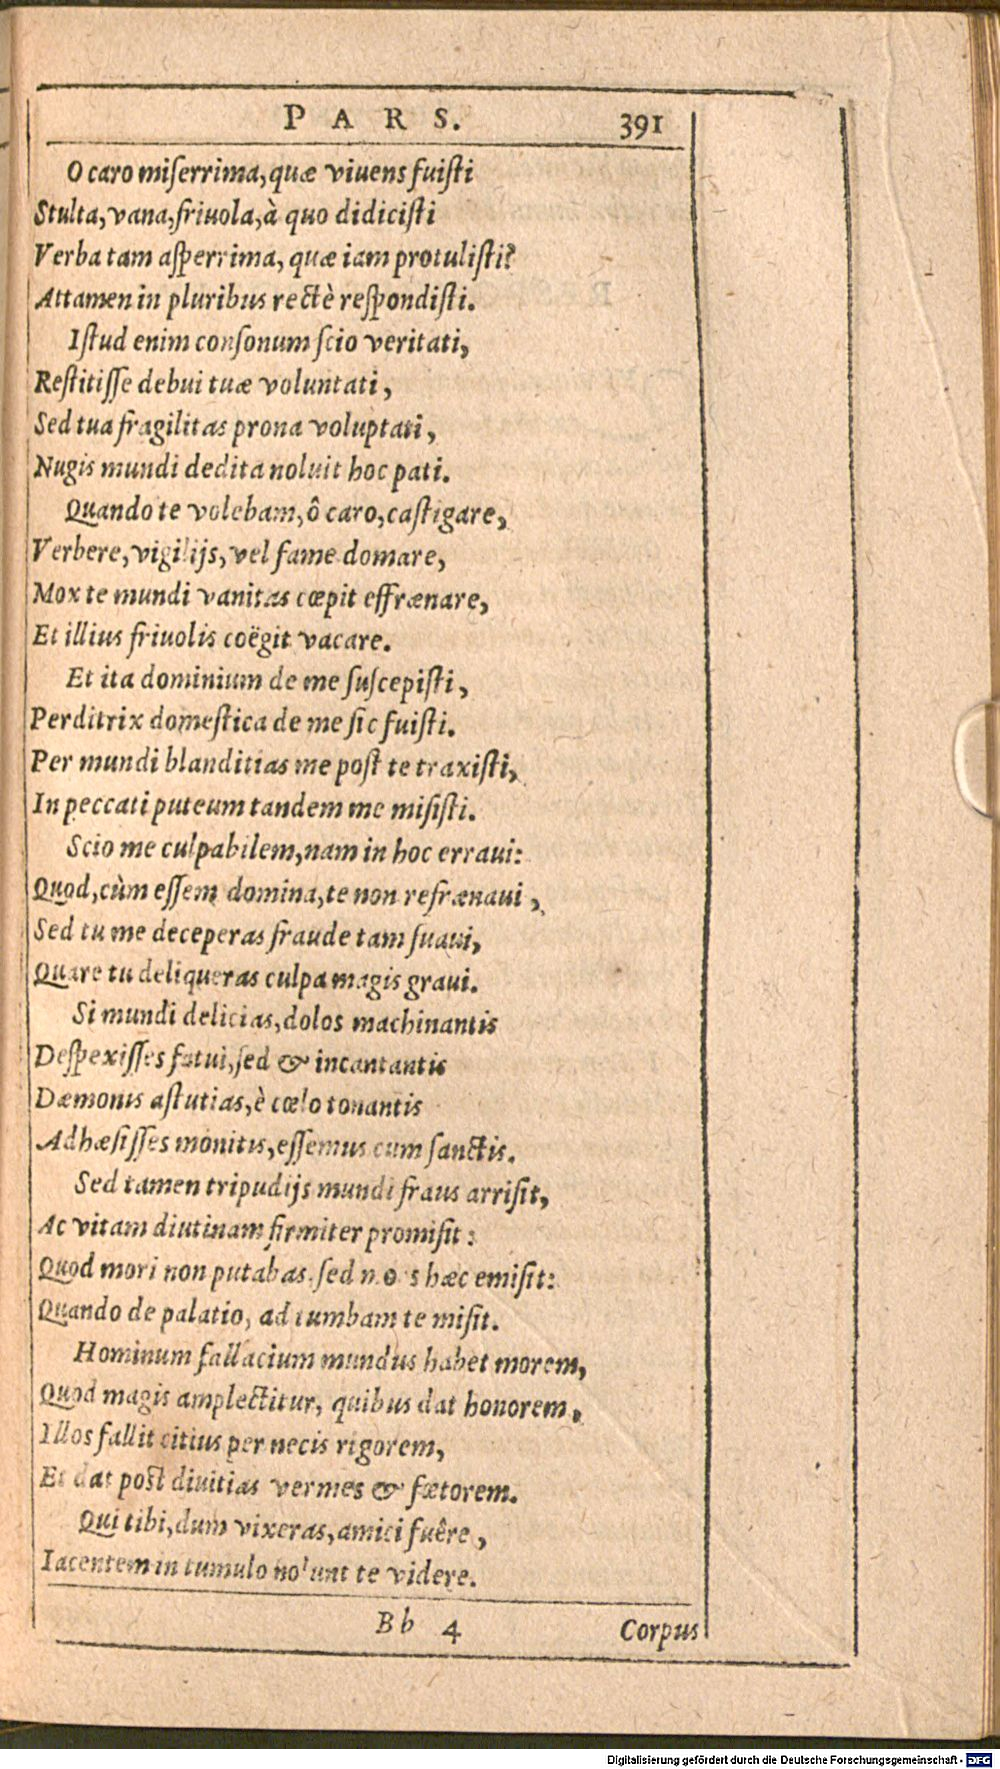 PARS. 391
O caro miſerrima, quæ viuens fuiſti
Stulta, vana, friuola, à quo didiciſti
Verba tam aſperrima, quæ iam protuliſti?
Attamen in pluribus rectè reſpondiſti.
Iſtud enim conſonum ſcio veritati,
Reſtitiſſe debui tuæ voluntati,
Sed tua fragilitas prona voluptati,
Nugis mundi dedita noluit hoc pati.
Quando te volebam, ô caro, caſtigare,
Verbere, vigilijs, vel fame domare,
Mox te mundi vanitas cœpit effrænare,
Et illius friuolis coëgit vacare.
Et ita dominium de me ſuſcepiſti,
Perditrix domeſtica de me ſic fuiſti.
Per mundi blanditias me poſt te traxiſti,
In peccati puteum tandem me miſiſti.
Scio me culpabilem, nam in hoc erraui:
Quod, cùm eſſem domina, te non refrænaui,
Sed tu me deceperas fraude tam ſuaui,
Quare tu deliqueras culpa magis graui.
Si mundi delicias, dolos machinantis
Deſpexiſſes fatui, ſed & incantantis
Dæmonis aſtutias, è cœlo tonantis
Adhæſiſſes monitis, eſſemus cum ſanctis.
Sed tamen tripudijs mundi fraus arriſit,
Ac vitam diutinam firmiter promiſit:
Quod mori non putabas. ſed mors hæc emiſit:
Quando de palatio, ad tumbam te miſit.
Hominum fallacium mundus habet morem,
Quod magis amplectitur, quibus dat honorem,
Illos fallit citius per necis rigorem,
Et dat poſt diuitias vermes & fœtorem.
Qui tibi, dum vixeras, amici fuêre,
Iacentem in tumulo nolunt te videre.
Bb 4 Corpus
Digitalisierung gefördert durch die Deutsche Forschungsgemeinschaft - DFG